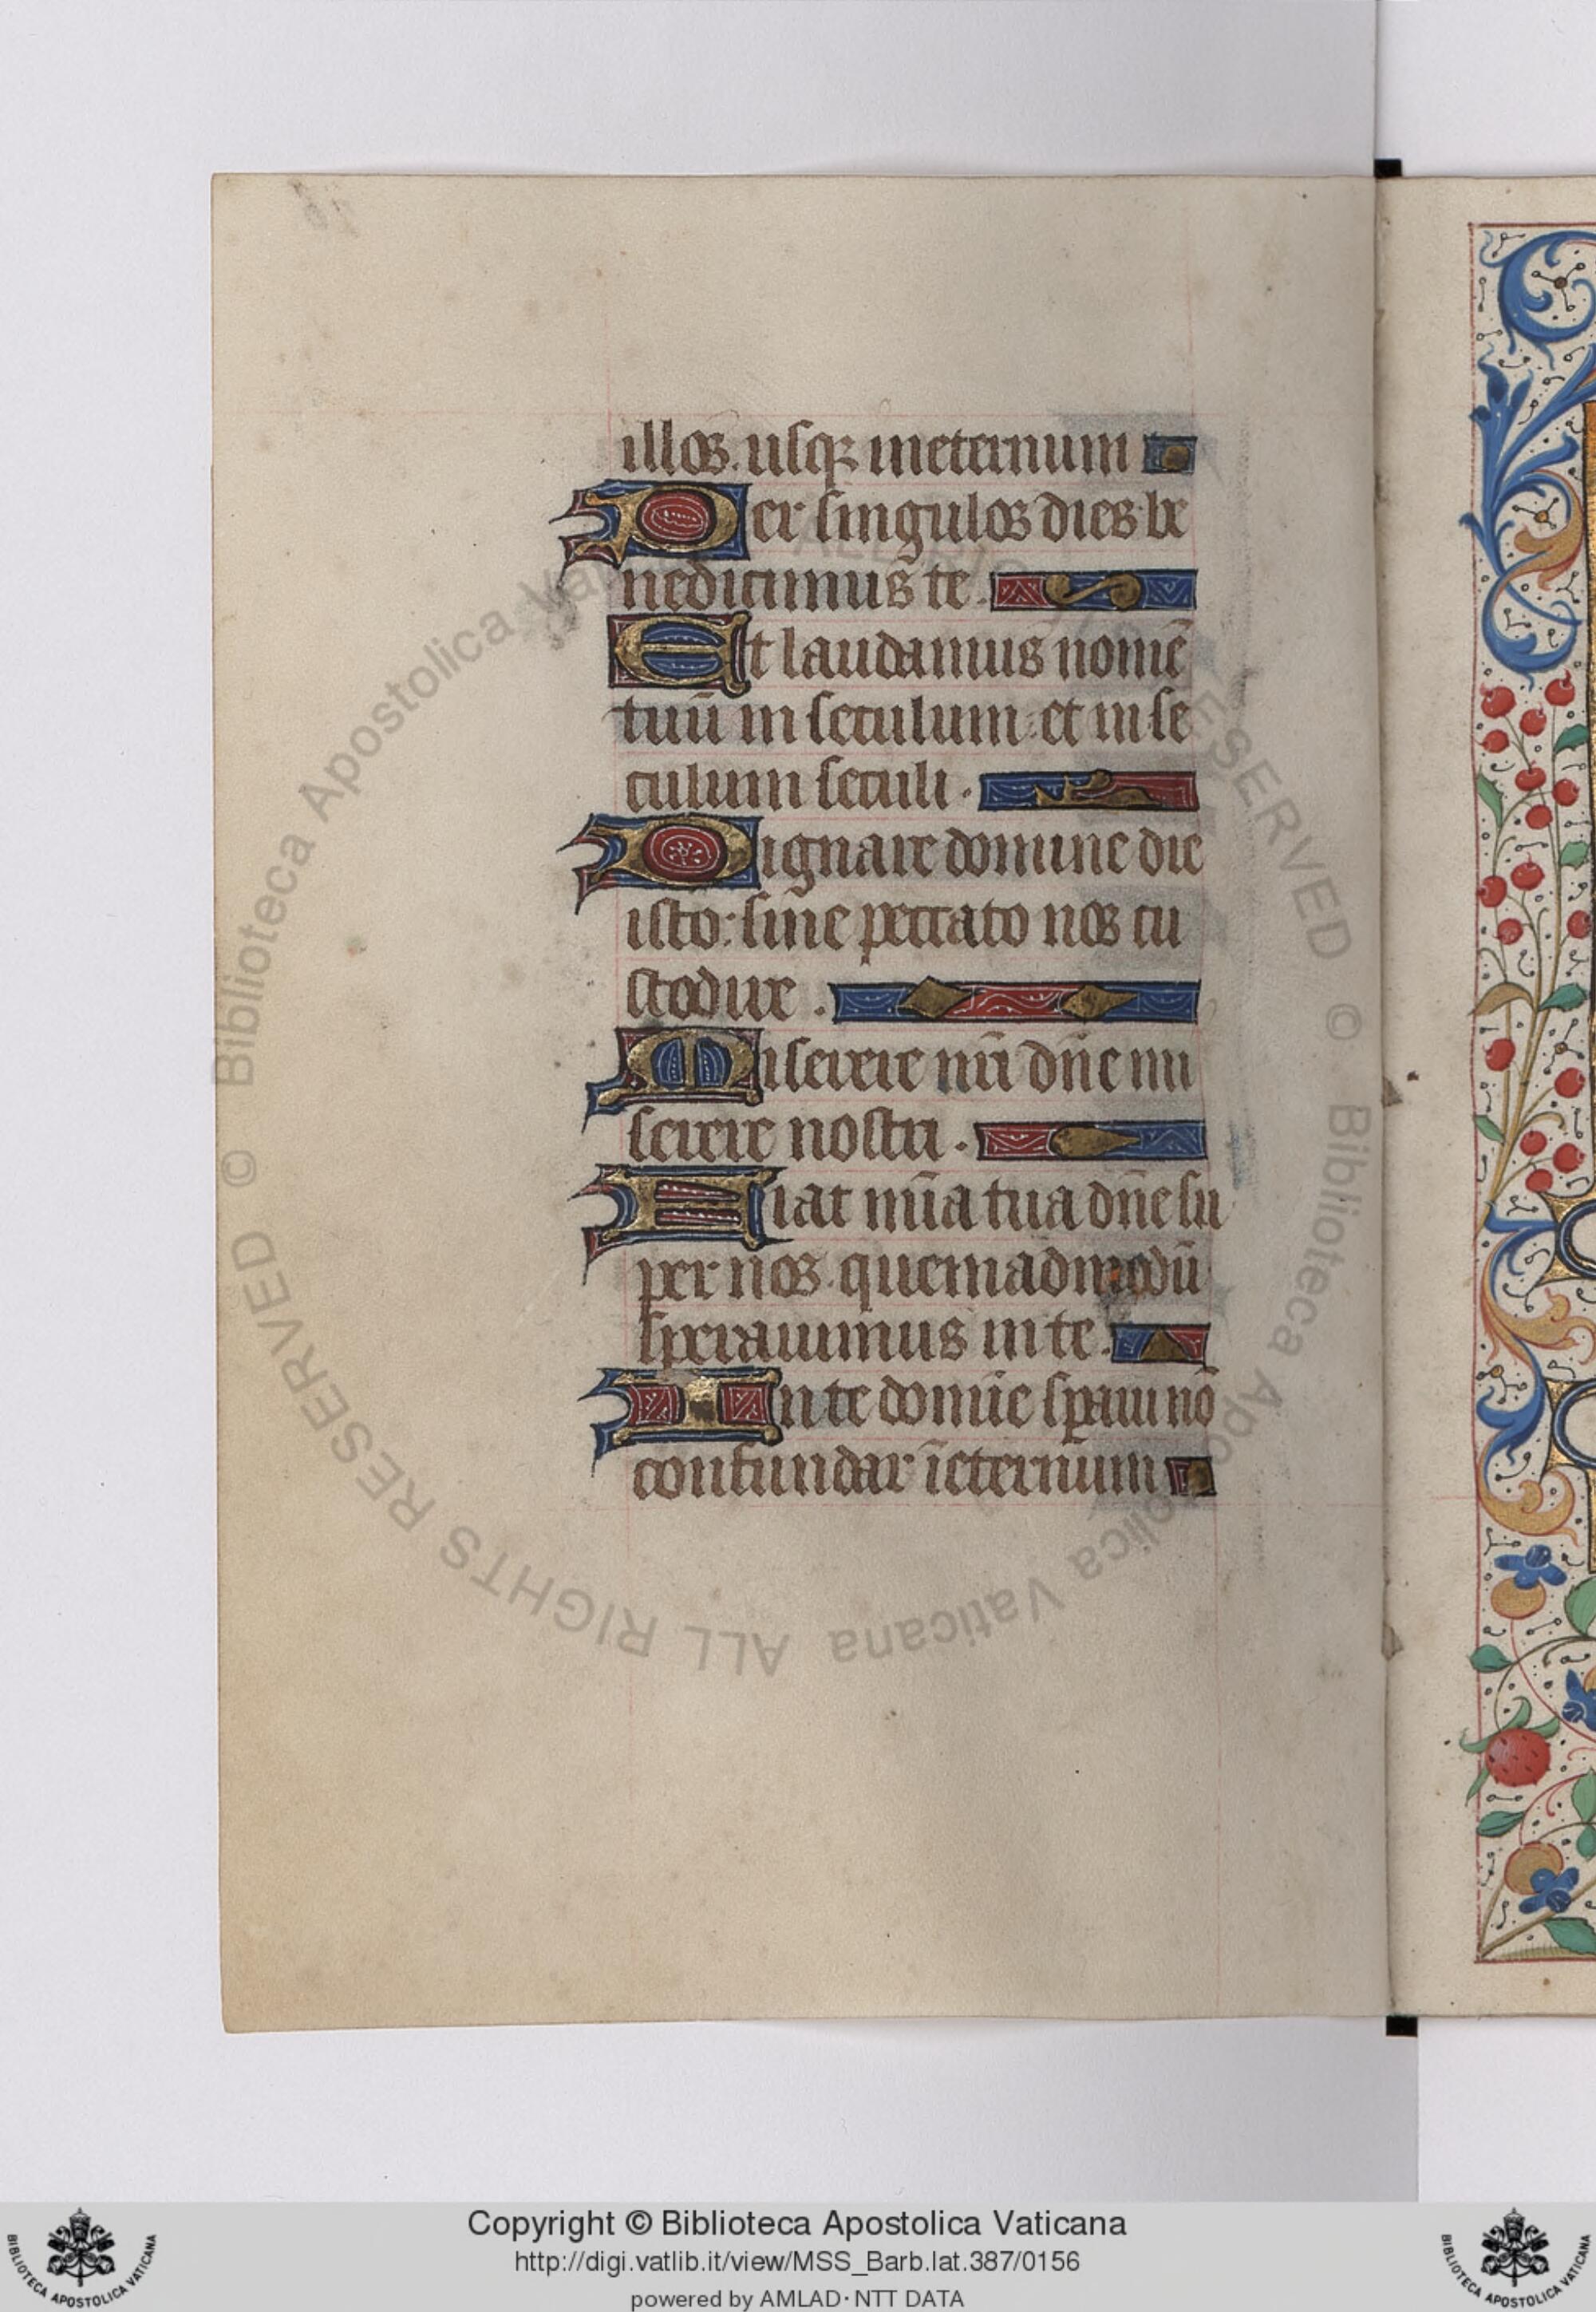 illos. usqꝫ ineternum
Per singulos dies be
nedicimus te.
Et laudamus nomē
tuū in seculum et in se
culum seculi.
Dignare domine die
isto: sine peccato nos cu
stodire.
Miserere nr̄i dn̄e mi
serere nostri.
Fiat mīa tua dn̄e su
per nos. quemadmodū
sperauimus in te.
In te domīe sꝑaui nō
confundar īeternum
© Biblioteca Apostolica Vaticana ALL RIGHTS RESERVED © Biblioteca Apostolica Vaticana ALL RIGHTS RESERVED
Copyright © Biblioteca Apostolica Vaticana
http://digi.vatlib.it/view/MSS_Barb.lat.387/0156
powered by AMLAD·NTT DATA
BIBLIOTECA APOSTOLICA VATICANA
BIBLIOTECA APOSTOLICA VATICANA